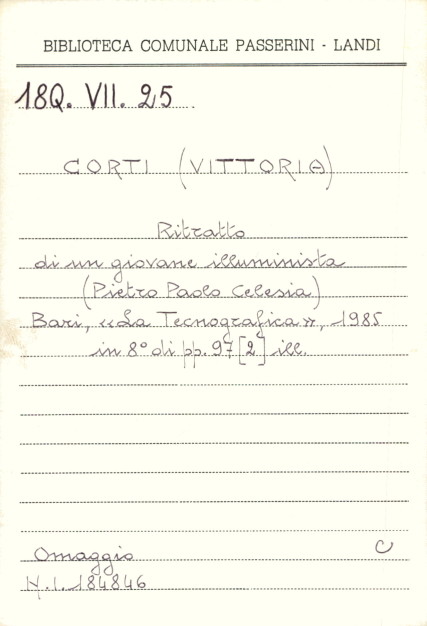 BIBLIOTECA COMUNALE PASSERINI - LANDI
18Q. VII. 25
CORTI (VITTORIA)
Ritratto
di un giovane illuminista
(Pietro Paolo Celesia)
Bari, «La Tecnografica», 1985
in 8° di pp. 97 [2] ill.
Omaggio C
N.I. 184846